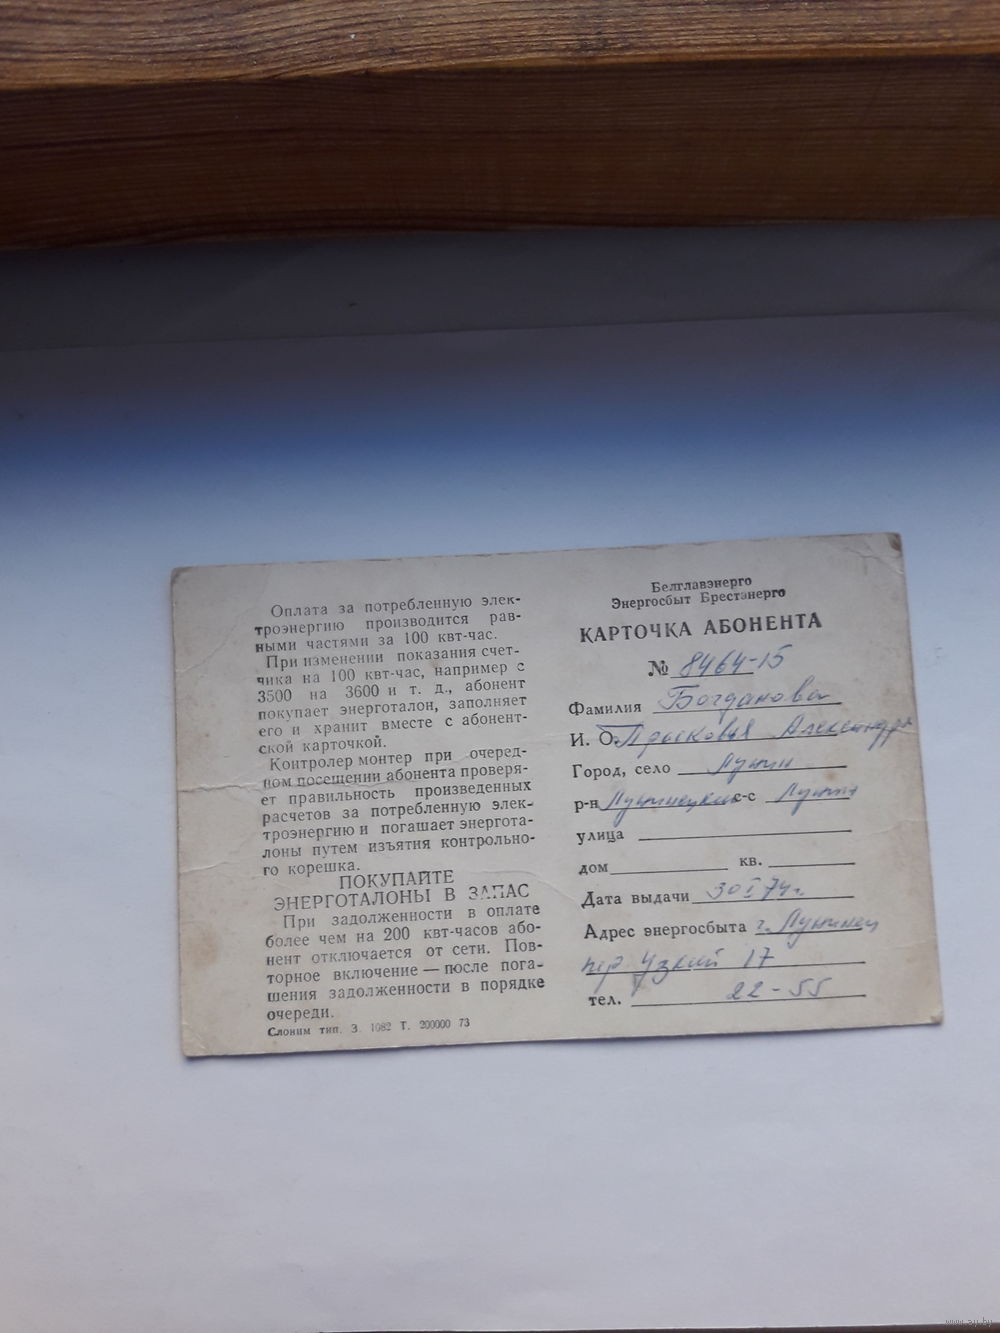 Оплата за потребленную элек-
троэнергию производится рав-
ными частями за 100 квт-час.
При изменении показания счет-
чика на 100 квт-час, например с
3500 на 3600 и т. д., абонент
покупает энерготалон, заполняет
его и хранит вместе с абонент-
ской карточкой.
Контролер монтер при очеред-
ном посещении абонента проверя-
ет правильность произведенных
расчетов за потребленную элек-
троэнергию и погашает энергота-
лоны путем изъятия контрольно-
го корешка.
ПОКУПАЙТЕ
ЭНЕРГОТАЛОНЫ В ЗАПАС
При задолженности в оплате
более чем на 200 квт-часов або-
нент отключается от сети. Пов-
торное включение — после пога-
шения задолженности в порядке
очереди.
Слоним тип. З. 1082 Т. 200000 73
Белглавэнерго
Энергосбыт Брестэнерго
КАРТОЧКА АБОНЕНТА
№ 8464-15
Фамилия Богданова
И. О. Прасковья Александр
Город, село Лунин
р-н Лунинецкий с-с Лунин
улица
дом кв.
Дата выдачи 30 I 74 г.
Адрес энергосбыта г. Лунинец
пер Узкий 17
тел. 22-55
www.ay.by